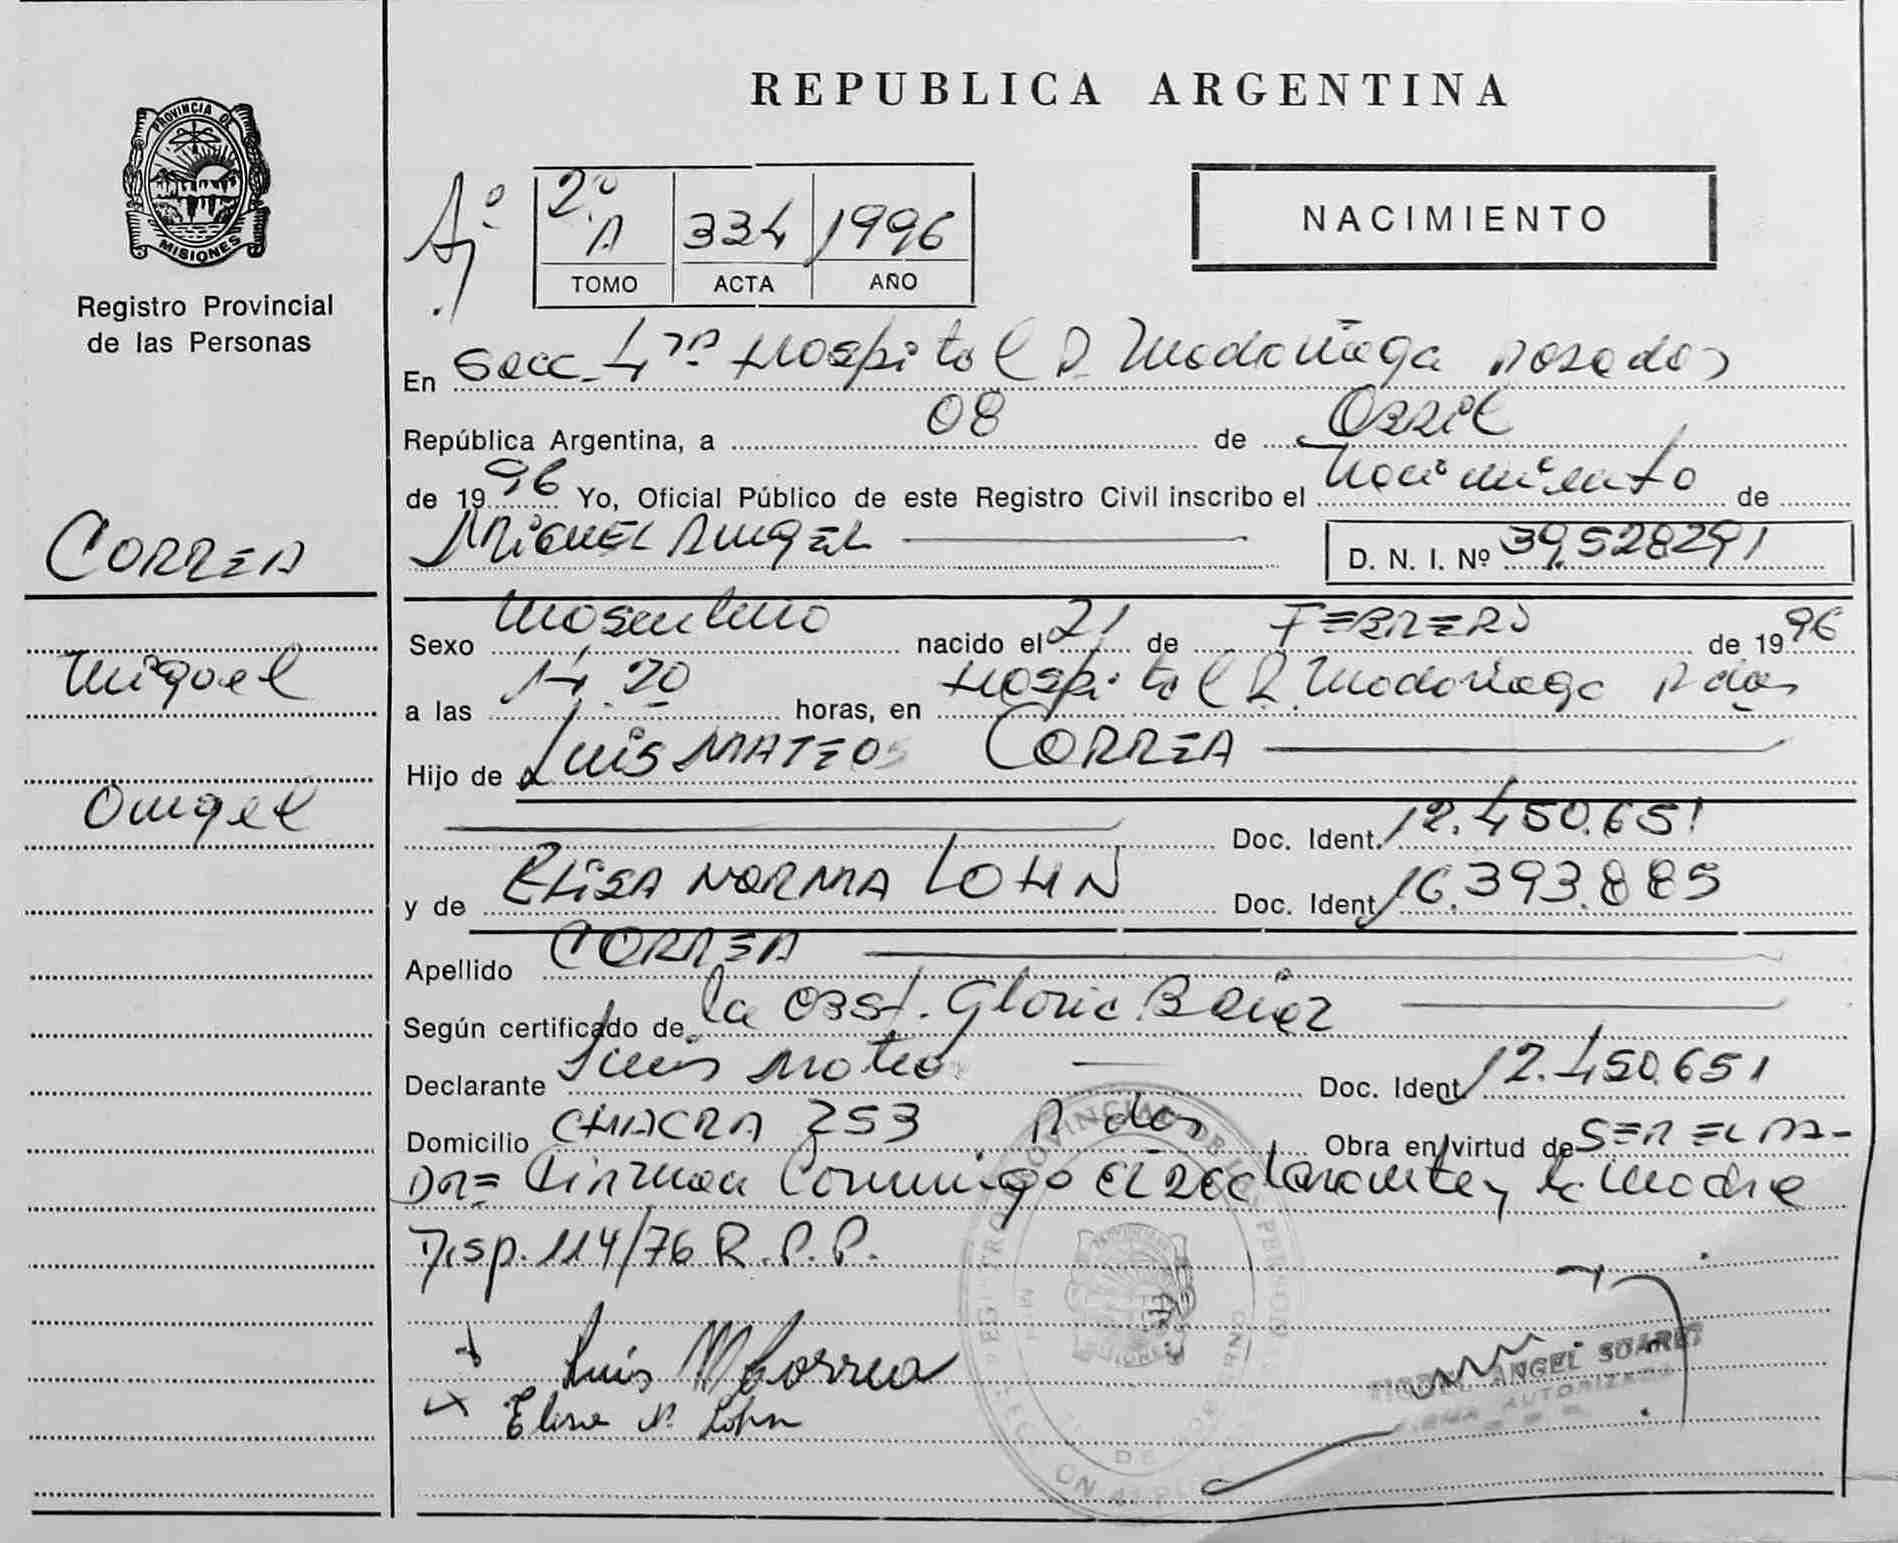 PROVINCIA DE
MISIONES
Registro Provincial
de las Personas
CORREA
Miguel
Angel
REPUBLICA ARGENTINA
2º A 334 1996
TOMO ACTA AÑO
NACIMIENTO
En Secc. 4ta Hospital R Madariaga Posadas
República Argentina, a 08 de Abril
de 1996 Yo, Oficial Público de este Registro Civil inscribo el Nacimiento de
MIGUEL ANGEL D. N. I. Nº 39.528291
Sexo Masculino nacido el 21 de FEBRERO de 1996
a las 14.20 horas, en Hospital R. Madariaga Pdas
Hijo de LUIS MATEOS CORREA
Doc. Ident. 12.450.651
y de ELISA NORMA LOHN Doc. Ident. 16.393.885
Apellido CORREA
Según certificado de la Obst. Gloria Baez
Declarante Luis Mateo Doc. Ident. 12.450.651
Domicilio CHACRA 253 Pdas Obra en virtud de SER EL PA-
DRE Firman Conmigo El declarante y la Madre
Disp. 114/76 R.P.P.
Luis M Correa
Elisa N. Lohn
MIGUEL ANGEL SUAREZ
FIRMA AUTORIZADA